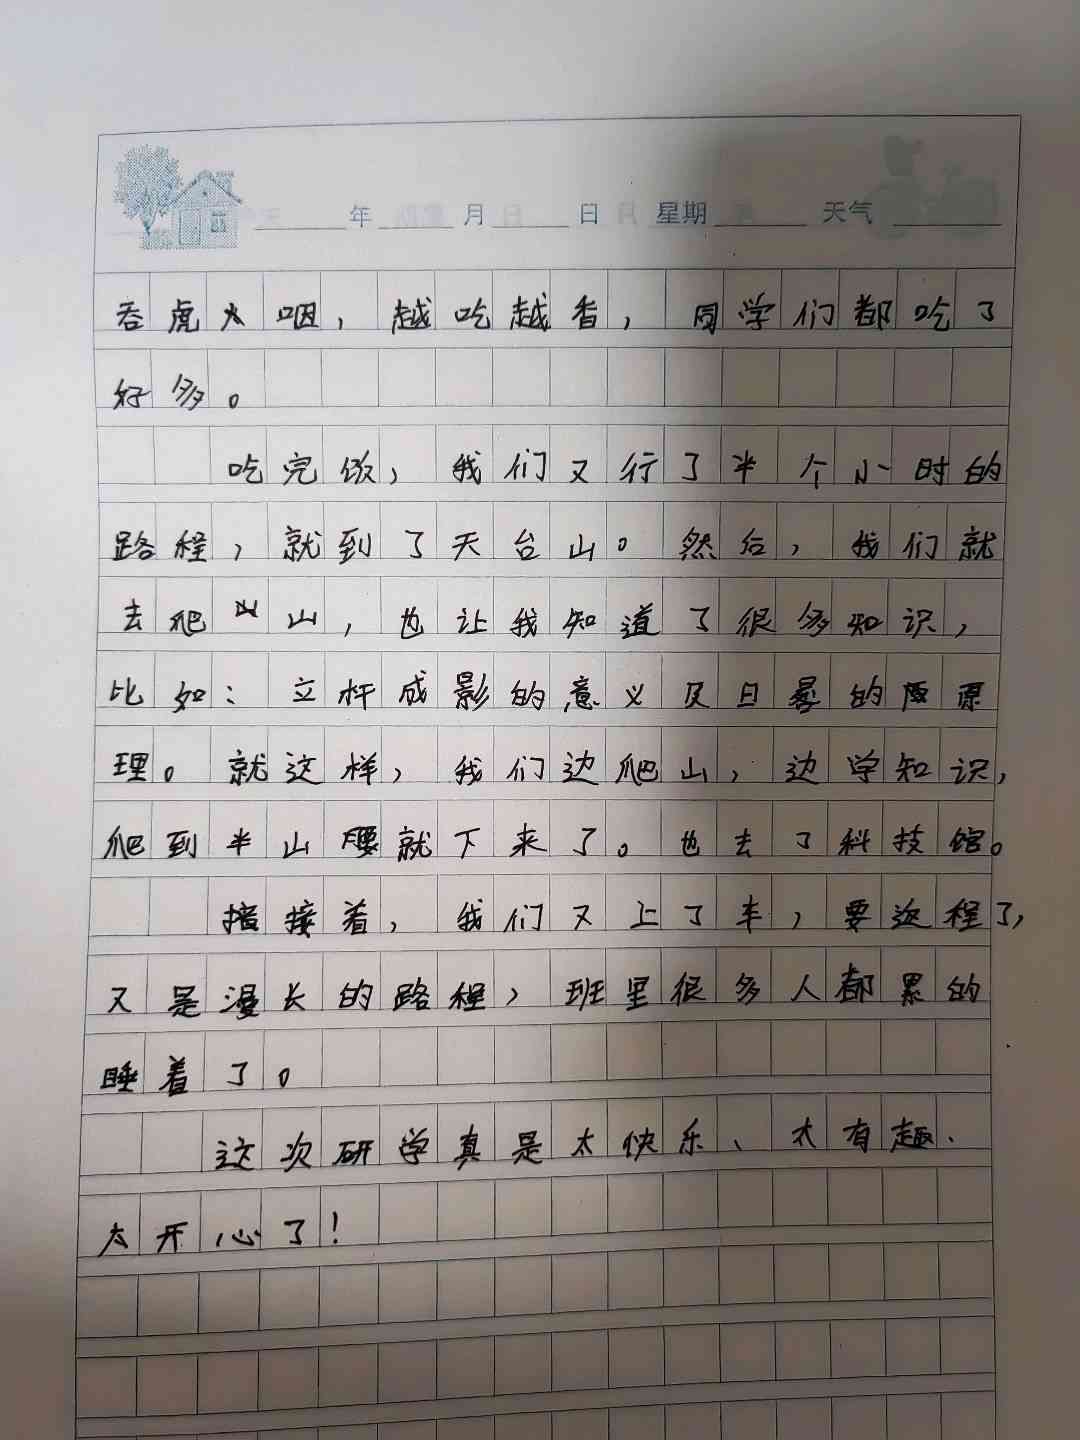 年 月 日 星期 天气
吞虎大咽，越吃越香，同学们都吃了
好多。
吃完饭，我们又行了半个小时的
路程，就到了天台山。然后，我们就
去爬山，也让我知道了很多知识，
比如：立杆成影的意义及日晷的原
理。就这样，我们边爬山，边学知识，
爬到半山腰就下来了。也去了科技馆。
接着，我们又上了车，要返程了，
又是漫长的路程，班里很多人都累的
睡着了。
这次研学真是太快乐、太有趣、
太开心了！